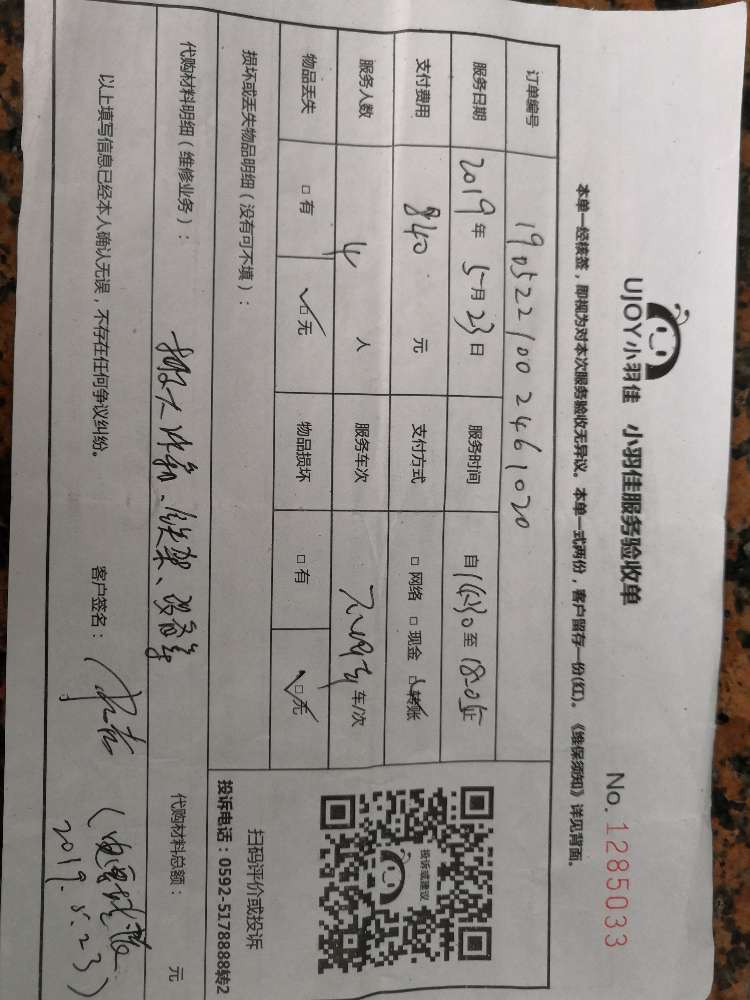 UJOY小羽佳 小羽佳服务验收单
No. 1285033
本单一经核签，即视为对本次服务验收无异议。本单一式两份，客户留存一份(红)。《维保须知》详见背面。
订单编号 190522100 2461020
服务日期 2019年 5月23日 服务时间 自14:30至18:05止
支付费用 840 元 支付方式 □网络 □现金 ☑转账
服务人数 4 人 服务车次 车/次
物品丢失 □有 ☑无 物品损坏 □有 ☑无
损坏或丢失物品明细（没有可不填）：
投诉或建议
扫码评价或投诉
投诉电话：0592-5178888转2
代购材料明细（维修业务）： 代购材料总额： 元
以上填写信息已经本人确认无误，不存在任何争议纠纷。 客户签名：
2019.5.23)